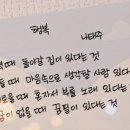 행복
나태주
때 돌아갈 집이 있다는 것
때 마음속으로 생각할 사람 있다
울 때 혼자서 부를 노래 있다는
이 없을 때
있다는 것